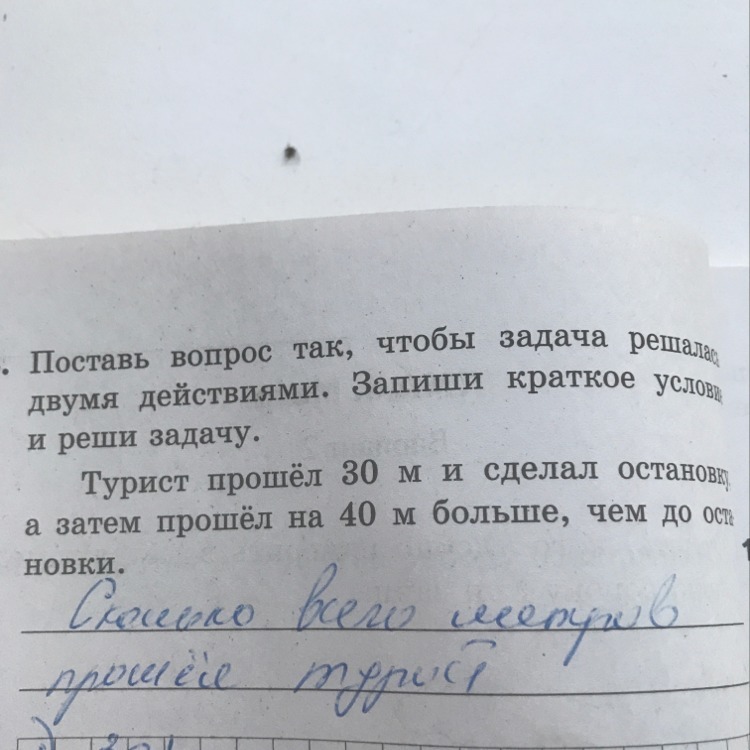 . Поставь вопрос так, чтобы задача решалась
двумя действиями. Запиши краткое условие
и реши задачу.
Турист прошёл 30 м и сделал остановку,
а затем прошёл на 40 м больше, чем до оста
новки.
Сколько всего метров
прошёл турист